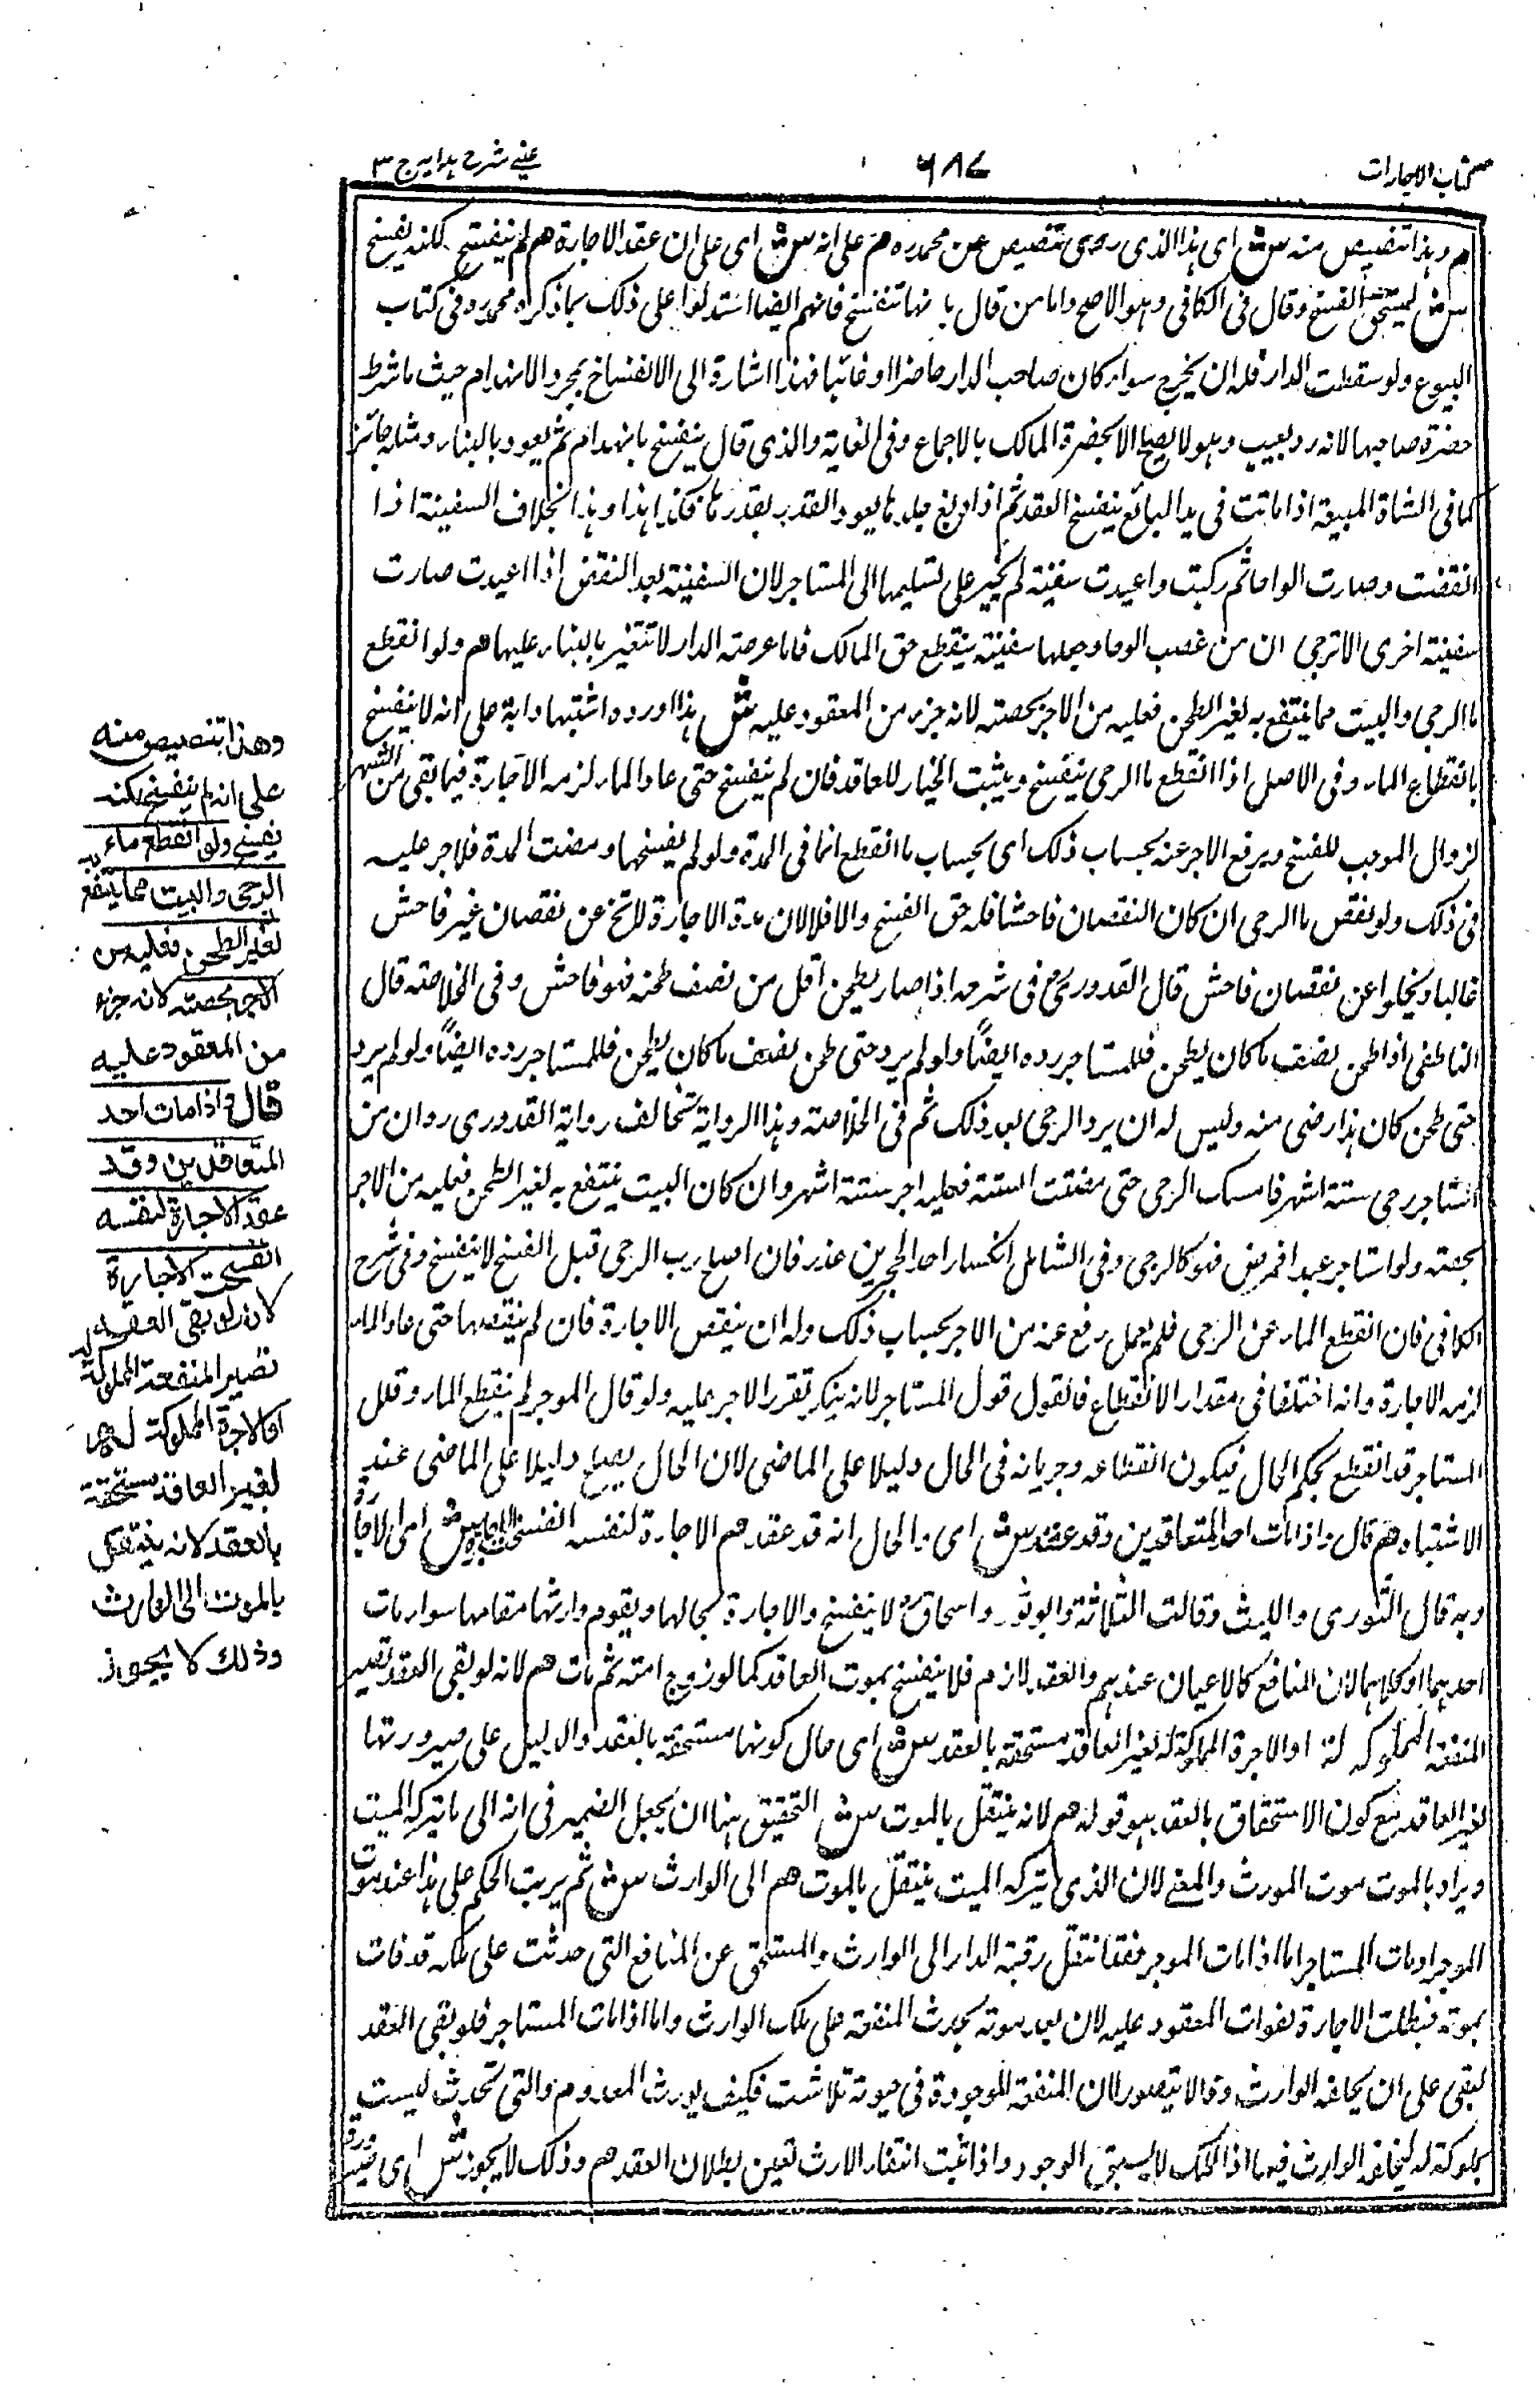 كتاب الاجارات
٦٨٧
عيني شرح هدايه ج ٣
م وهذا تنصيص منه ش اى هذا الذى روى تنصيص عن محمد ره م على انه ش اى على ان عقد الاجارة م لم ينفسخ لكنه يفسخ
ش ليستحق الفسخ وقال فى الكافى وهو الاصح واما من قال بانها تنفسخ فانهم ايضا استدلوا على ذلك بما ذكره محمد ره فى كتاب
البيوع ولو سقطت الدار فله ان يخرج سواء كان صاحب الدار حاضرا او غائبا فهذا اشارة الى الانفساخ بمجرد الانهدام حيث ما شرط
حضرة صاحبها لانه رد بعيب وهو لا يصح الا بحضرة المالك بالاجماع وفى الغاية والذى قال ينفسخ بانهدام ثم يعود بالبناء ومثله جائز
كما فى الشاة المبيعة اذا ماتت فى يد البائع ينفسخ العقد ثم اذا دبغ جلدها يعود القدر بقدر ما فكذا هذا وهذا بخلاف السفينة اذا
انقضت وصارت الواحا ثم ركبت واعيدت سفينة لم يجبر على تسليمها الى المستاجر لان السفينة بعد النقض اذا اعيدت صارت
سفينة اخرى الا ترى ان من غصب الوحا وجعلها سفينة ينقطع حق المالك فاما عرصة الدار لا تتغير بالبناء عليها م ولو انقطع
ماء الرحى والبيت مما ينتفع به لغير الطحن فعليه من الاجر بحصته لانه جزء من المعقود عليه ش هذا اورده اشتبهادا به على انه لا ينفسخ
بانقطاع الماء وفى الاصل اذا انقطع ماء الرحى ينفسخ ويثبت الخيار للعاقد فان لم ينفسخ حتى عاد الماء لزمه الاجارة فيما بقى من الشهر
لزوال الموجب للفسخ ويرفع الاجر عنه بحساب ذلك اى بحساب ما انقطع انما فى المدة ولو لم يفسخها ومضت المدة فلا اجر عليه
فى ذلك ولو نقص ماء الرحى ان كان النقصان فاحشا فله حق الفسخ والا فلا لان مدة الاجارة لا تخ عن نقصان غير فاحش
غالبا ويخلوا عن نقصان فاحش قال القدورى رح فى شرحه اذا صار يطحن اقل من نصف طحنه فهو فاحش وفى الخلاصة قال
الناطفى اذا طحن نصف ما كان يطحن فللمستاجر رده ايضاً ولو لم يرد حتى طحن نصف ما كان يطحن فللمستاجر رده ايضاً ولو لم يرد
حتى طحن كان هذا رضى منه وليس له ان يرد الرحى بعد ذلك ثم فى الخلاصة وهذا الرواية تخالف رواية القدورى رد ان من
استاجر رحى ستة اشهر فامسك الرحى حتى مضت الستة فعليه اجر ستة اشهر وان كان البيت ينتفع به لغير الطحن فعليه من الاجر
بحصته ولو استاجر عبدا فمرض فهو كالرحى وفى الشامل انكسار احد الحجرين عذر فان اصلح رب الرحى قبل الفسخ لا ينفسخ وفى شرح
الكافى فان انقطع الماء عن الرحى فلم يعمل رفع عنه من الاجر بحساب ذلك وله ان ينقص الاجارة فان لم ينقضها حتى عاد الماء
لزمه الاجارة وانه اختلفا فى مقدار الانقطاع فالقول قول المستاجر لانه ينكر تقرر الاجر عليه ولو قال الموجر لم ينقطع الماء وقلل
المستاجر قد انقطع يحكم الحال فيكون انقطاعه وجريانه فى الحال دليلا على الماضى لان الحال يصلح دليلا على الماضى عند
الاشتباه م قال واذا مات احد المتعاقدين وقد عقد ش اى والحال انه قد عقد م الاجارة لنفسه انفسخت الاجارة ش اى الاجارة
وبه قال الثورى والليث وقالت الثلاثة وابو ثور واسحاق ره لا ينفسخ والاجارة بحالها ويقوم وارثها مقامها سواء مات
احدهما او كلاهما لان المنافع كالاعيان عندهم والعقد لازم فلا ينفسخ بموت العاقد كما لو زوج امته ثم مات م لانه لو بقى العقد تصير
المنفعة المملوكه له او الاجرة المملوكة له لغير العاقد مستحقة بالعقد ش اى حال كونها مستحقة بالعقد والدليل على صيرورتها
لغير العاقد مع كون الاستحقاق بالعقد هو قوله م لانه ينتقل بالموت ش التحقيق هنا ان يجعل الضمير فى انه الى ما يتركه الميت
ويراد بالموت موت المورث والمعنى لان الذى يتركه الميت ينتقل بالموت م الى الوارث ش ثم يرتب الحكم على هذا عند موت
الموجر او مات المستاجر اما اذا مات الموجر فقد انتقل رقبة الدار الى الوارث والمستحق عن المنافع التى حدثت على ملكه قد فات
بموته فبطلت الاجارة لفوات المعقود عليه لان بعد موته يحدث المنفعة على ملك الوارث واما اذا مات المستاجر فلو بقى العقد
لبقى على ان يخلفه الوارث وذا لا يتصور لان المنفعة الموجودة فى حيوته تلاشت فكيف يورث المعدوم والتى تحدث ليست
بملوكة له ليخلفه الوارث فيها اذا الملك لا يسبق الوجود واذا ثبت انتفاء الارث تعين بطلان العقد م وذلك لا يجوز ش اى صيرورة
وهذا تنصيص منه
على انه لم ينفسخ لكنه
يفسخ ولو انقطع ماء
الرحى والبيت مما ينتفع به
لغير الطحن فعليه من
الاجر بحصته لانه جزء
من المعقود عليه
قال واذا مات احد
المتعاقدين وقد
عقد الاجارة لنفسه
انفسخت الاجارة
لانه لو بقى العقد
تصير المنفعة المملوكة له
او الاجرة المملوكة له
لغير العاقد مستحقة
بالعقد لانه ينتقل
بالموت الى الوارث
وذلك لا يجوز